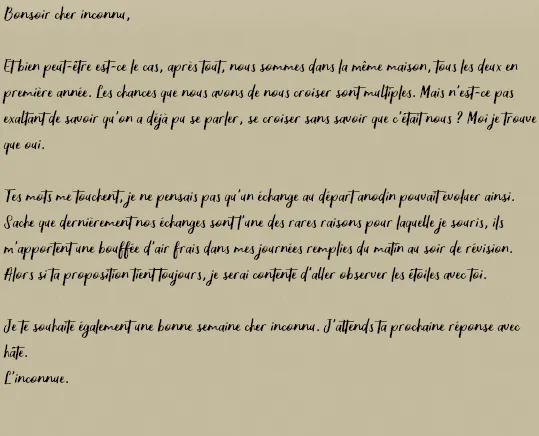 Bonsoir cher inconnu,
Et bien peut-être est-ce le cas, après tout, nous sommes dans la même maison, tous les deux en
première année. Les chances que nous avons de nous croiser sont multiples. Mais n'est-ce pas
exaltant de savoir qu'on a déjà pu se parler, se croiser sans savoir que c'était nous ? Moi je trouve
que oui.
Tes mots me touchent, je ne pensais pas qu'un échange au départ anodin pouvait évoluer ainsi.
Sache que dernièrement nos échanges sont l'une des rares raisons pour laquelle je souris, ils
m'apportent une bouffée d'air frais dans mes journées remplies du matin au soir de révision.
Alors si ta proposition tient toujours, je serai contente d'aller observer les étoiles avec toi.
Je te souhaite également une bonne semaine cher inconnu. J'attends ta prochaine réponse avec
hâte.
L'inconnue.